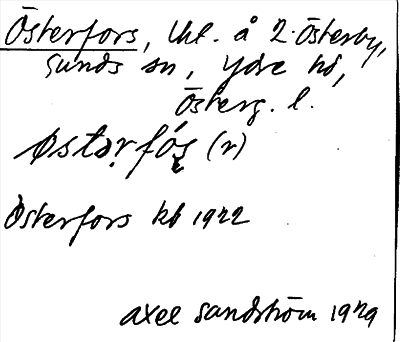 Österfors, lht. å 2 Österby,
Sunds sn, Ydre hd,
Österg. l.
östərfós (r)
Österfors kb 1922
Axel Sandström 1929